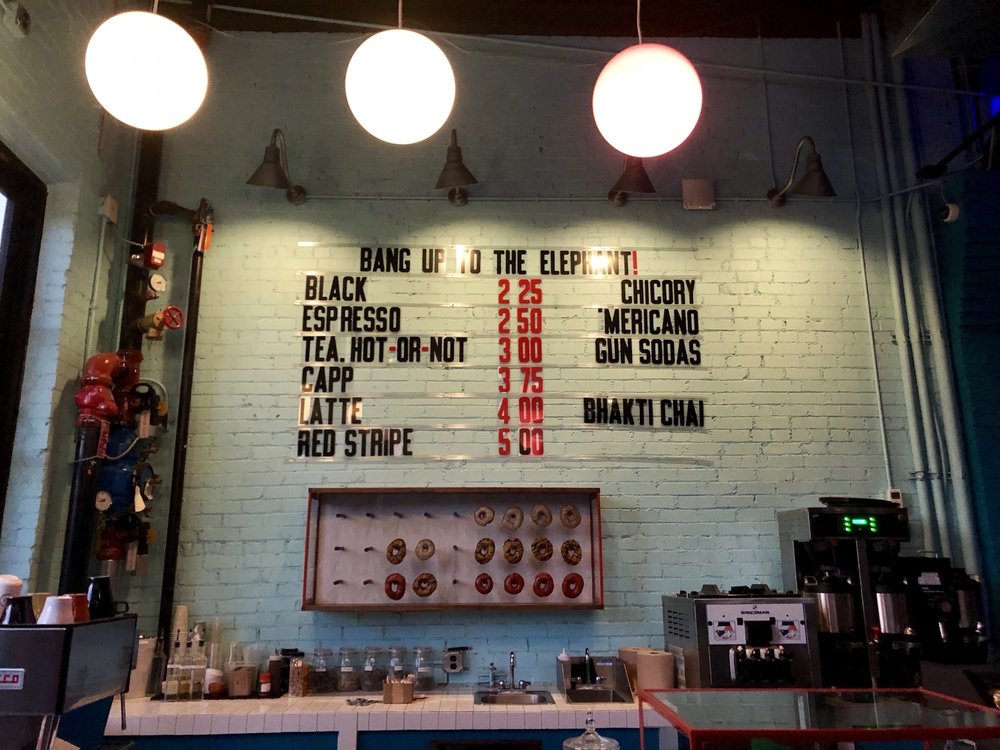 BANG UP TO THE ELEPHANT!
BLACK 2 25 CHICORY
ESPRESSO 2 50 'MERICANO
TEA. HOT-OR-NOT 3 00 GUN SODAS
CAPP 3 75
LATTE 4 00 BHAKTI CHAI
RED STRIPE 5 00
SPACEMAN